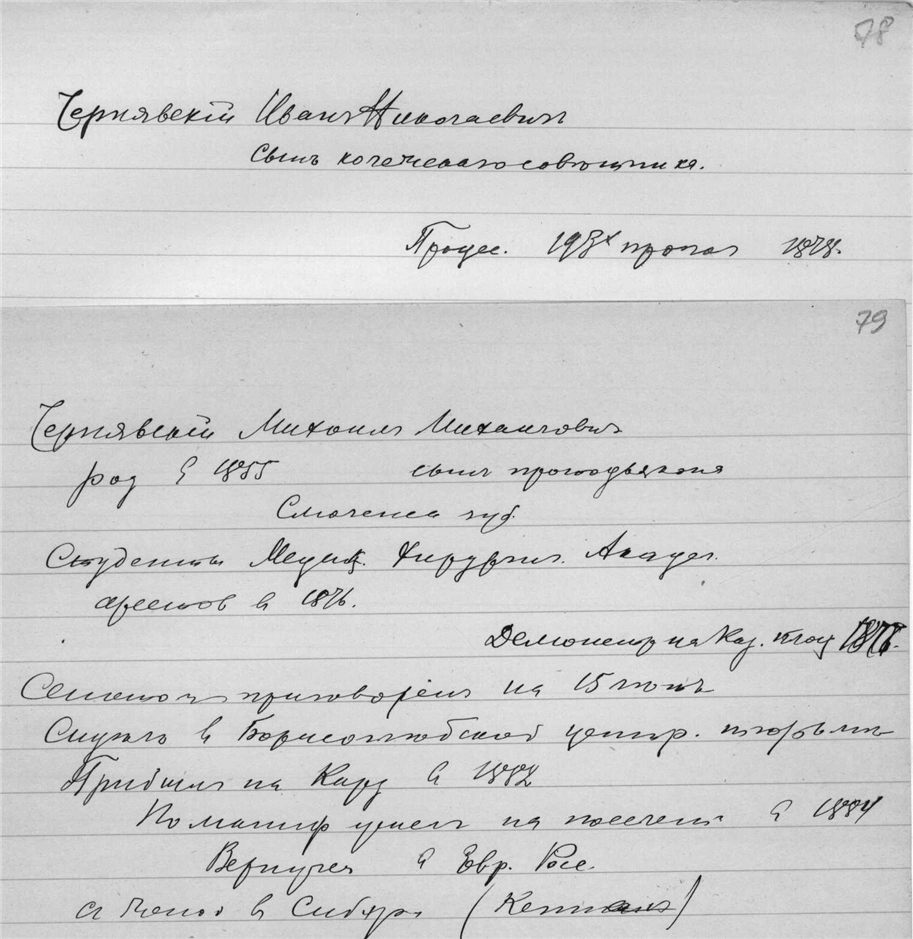 78
Чернявскій Иванъ Николаевичъ
сынъ коллежскаго совѣтника.
Процес. 193х пропаг 1878.
79
Чернявскій Михаилъ Михаиловичъ
род в 1855 сынъ протодьякона
Смоленск губ.
Студентъ Медиц. Хирургич. Академ.
арестов в 1876.
Демонстр на Каз. площ 1876.
Сенатом приговоренъ на 15 лѣтъ
Сидѣлъ в Борисоглѣбской центр. тюрьмѣ
Прибылъ на Кару в 1882
По маниф ушелъ на поселені в 1884
Вернулся в Евр. Рос.
в Сибири (Кеннанъ)